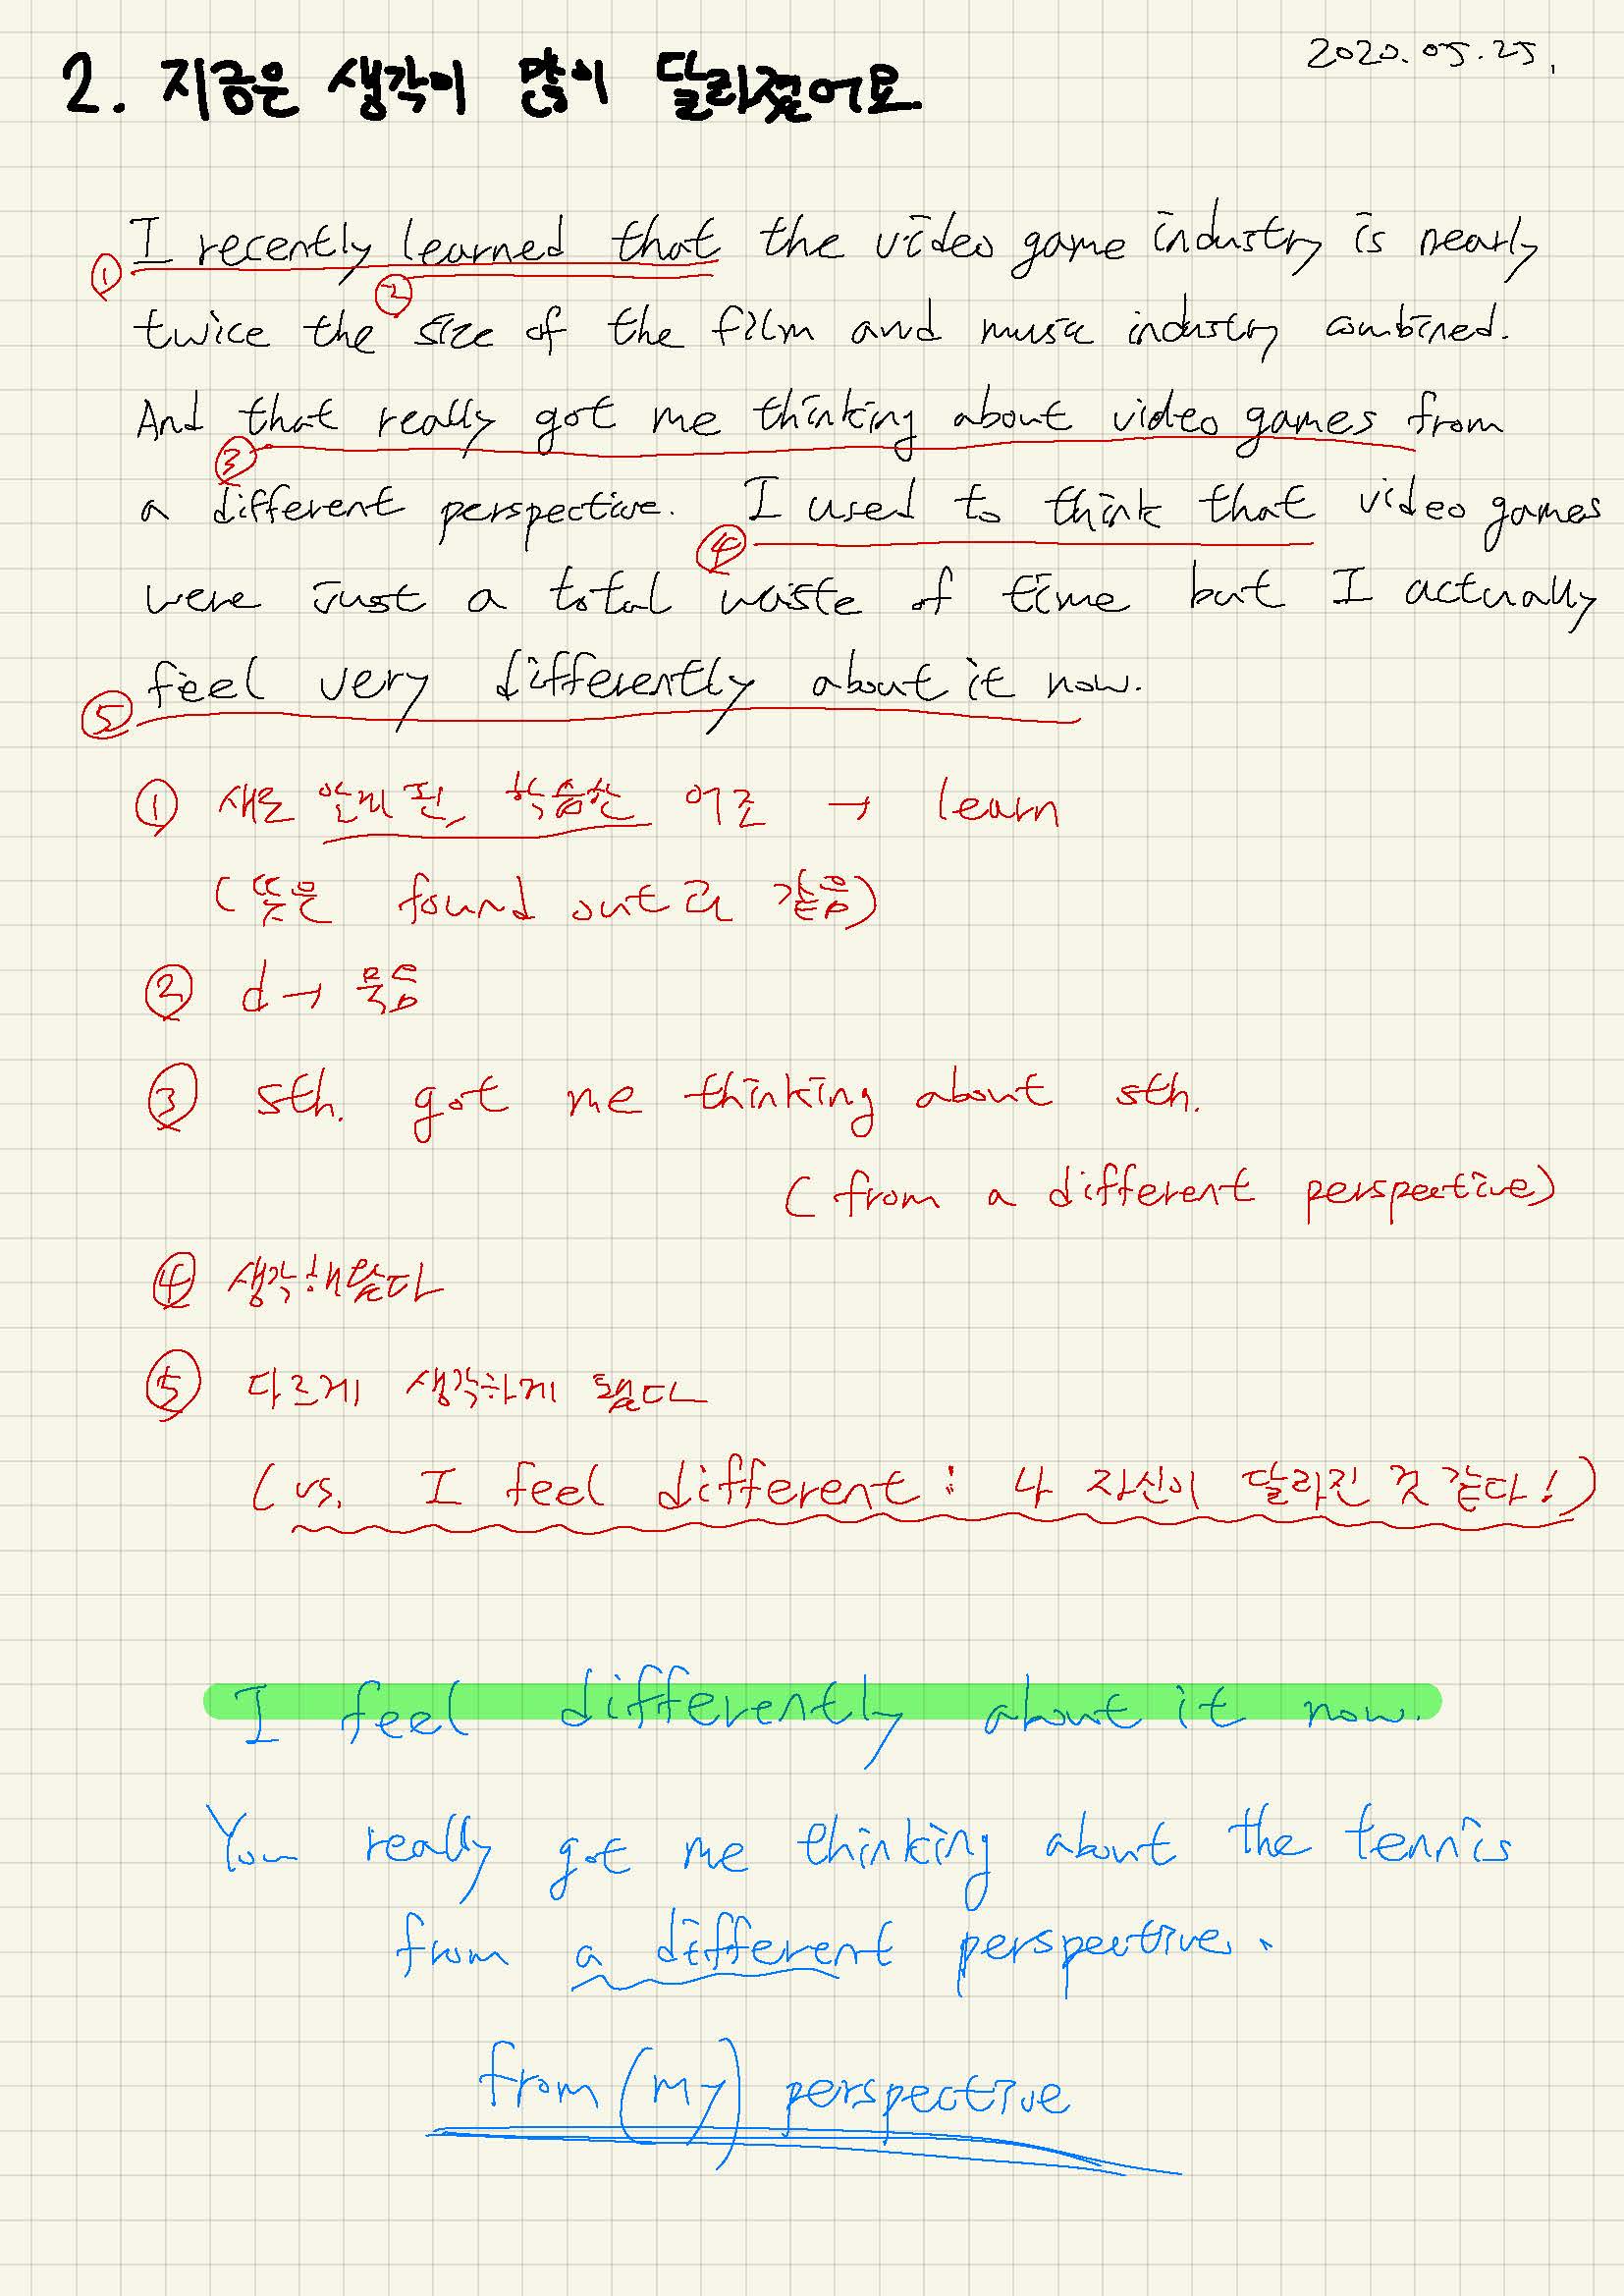 2020.05.25.
2. 지금은 생각이 많이 달라졌어요
I recently learned that the video game industry is nearly
① ②
twice the size of the film and music industry combined.
And that really got me thinking about video games from
③
a different perspective. I used to think that video games
④
were just a total waste of time but I actually
feel very differently about it now.
⑤
① 새로 알게 된, 학습한 어조 → learn
(뜻은 found out과 같음)
② d → 묵음
③ sth. got me thinking about sth.
(from a different perspective)
④ 생각해왔다
⑤ 다르게 생각하게 됐다
(vs. I feel different : 나 자신이 달라진 것 같다!)
I feel differently about it now.
You really got me thinking about the tennis
from a different perspective.
from (my) perspective